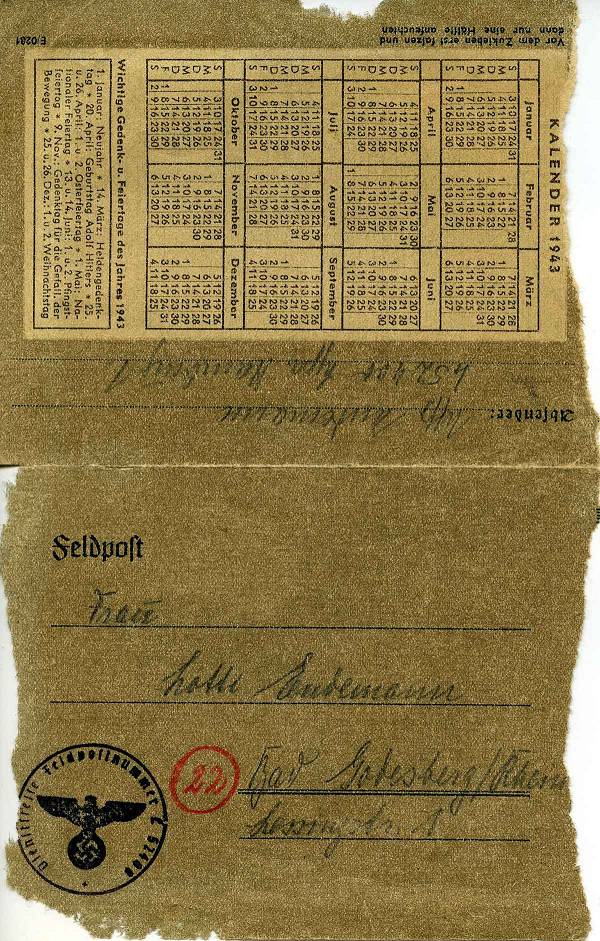 Vor dem Zukleben erst falzen und
dann nur eine Hälfte anfeuchten
E/0281
KALENDER 1943
Januar Februar März
S 3 10 17 24 31 7 14 21 28 7 14 21 28
M 4 11 18 25 1 8 15 22 1 8 15 22 29
D 5 12 19 26 2 9 16 23 2 9 16 23 30
M 6 13 20 27 3 10 17 24 3 10 17 24 31
D 7 14 21 28 4 11 18 25 4 11 18 25
F 1 8 15 22 29 5 12 19 26 5 12 19 26
S 2 9 16 23 30 6 13 20 27 6 13 20 27
April Mai Juni
S 4 11 18 25 2 9 16 23 30 6 13 20 27
M 5 12 19 26 3 10 17 24 31 7 14 21 28
D 6 13 20 27 4 11 18 25 1 8 15 22 29
M 7 14 21 28 5 12 19 26 2 9 16 23 30
D 1 8 15 22 29 6 13 20 27 3 10 17 24
F 2 9 16 23 30 7 14 21 28 4 11 18 25
S 3 10 17 24 1 8 15 22 29 5 12 19 26
Juli August September
S 4 11 18 25 1 8 15 22 29 5 12 19 26
M 5 12 19 26 2 9 16 23 30 6 13 20 27
D 6 13 20 27 3 10 17 24 31 7 14 21 28
M 7 14 21 28 4 11 18 25 1 8 15 22 29
D 1 8 15 22 29 5 12 19 26 2 9 16 23 30
F 2 9 16 23 30 6 13 20 27 3 10 17 24
S 3 10 17 24 31 7 14 21 28 4 11 18 25
Oktober November Dezember
S 3 10 17 24 31 7 14 21 28 5 12 19 26
M 4 11 18 25 1 8 15 22 29 6 13 20 27
D 5 12 19 26 2 9 16 23 30 7 14 21 28
M 6 13 20 27 3 10 17 24 1 8 15 22 29
D 7 14 21 28 4 11 18 25 2 9 16 23 30
F 1 8 15 22 29 5 12 19 26 3 10 17 24 31
S 2 9 16 23 30 6 13 20 27 4 11 18 25
Wichtige Gedenk- u. Feiertage des Jahres 1943
1. Januar: Neujahr * 14. März: Heldengedenk-
tag * 20. April: Geburtstag Adolf Hitlers * 25.
u. 26. April: 1. u. 2. Osterfeiertag * 1. Mai: Na-
tionaler Feiertag * 13. u. 14. Juni: 1. u. 2. Pfingst-
feiertag * 9. Nov.: Gedenktag für die Gefallenen der
Bewegung * 25. u. 26. Dez.: 1. u. 2. Weihnachtstag
Absender: Endemann
L 52400 Hamburg 1
Feldpost
Frau
Lotte Endemann
22 Bad Godesberg/Rhein
Lessingstr. 1
Dienststelle Feldpostnummer L 52400